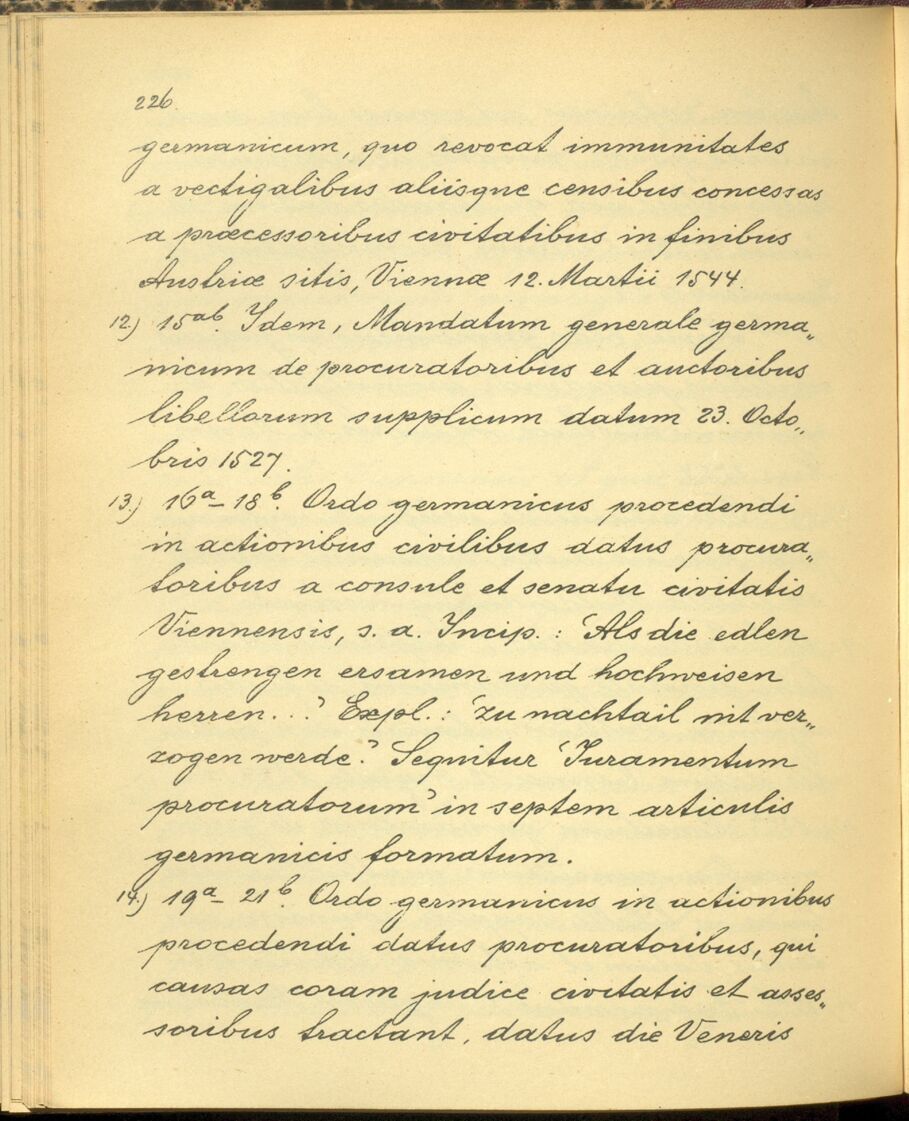 226
germanicum, quo revocat immunitates
a vectigalibus aliisque censibus concessas
a præcessoribus civitatibus in finibus
Austriæ sitis, Viennæ 12. Martii 1544.
12.) 15ab. Idem, Mandatum generale germa„
nicum de procuratoribus et auctoribus
libellorum supplicum datum 23. Octo„
bris 1527.
13.) 16a–18b. Ordo germanicus procedendi
in actionibus civilibus datus procura„
toribus a consule et senatu civitatis
Viennensis, s. a. Incip.: ‘Als die edlen
gestrengen ersamen und hochweisen
herren...’ Expl.: ‘zu nachtail nit ver„
zogen werde.’ Sequitur ‘Iuramentum
procuratorum’ in septem articulis
germanicis formatum.
14.) 19a–21b. Ordo germanicus in actionibus
procedendi datus procuratoribus, qui
causas coram judice civitatis et asses„
soribus tractant, datus die Veneris